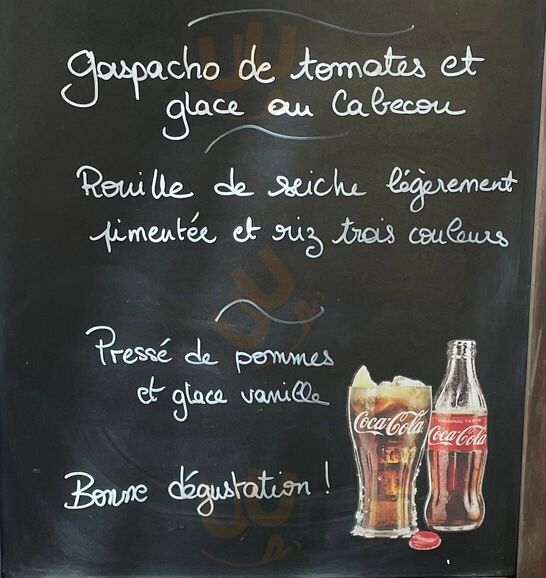 gaspacho de tomates et
glace au Cabecou
Rouille de seiche légèrement
pimentée et riz trois couleurs
Pressé de pommes
et glace vanille
Bonne dégustation !
Coca-Cola
ORIGINAL TASTE
Coca-Cola